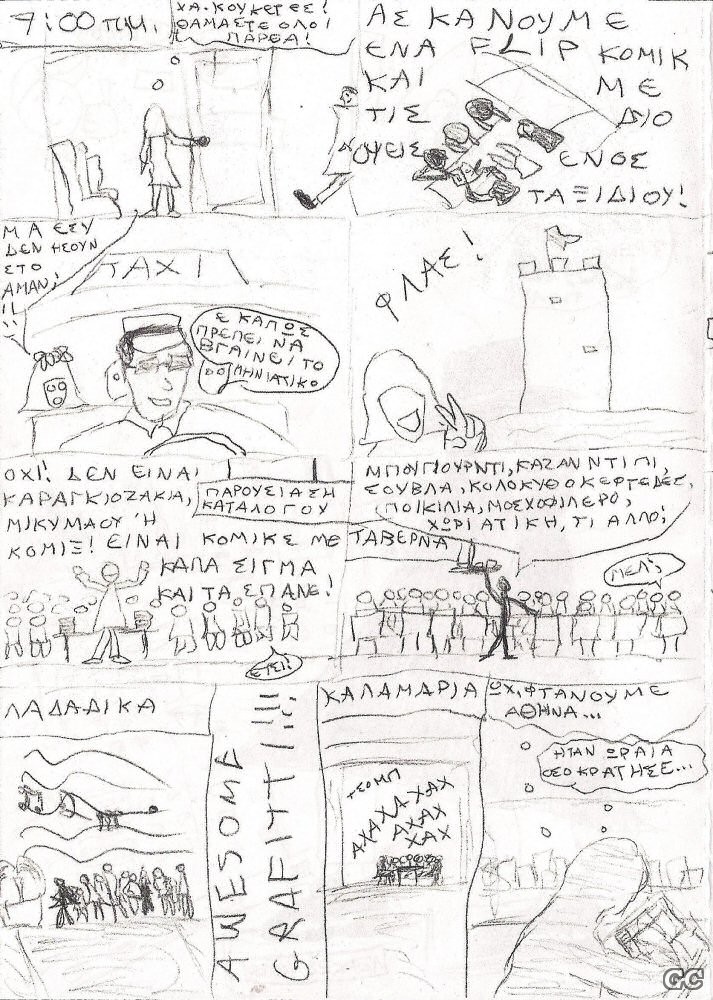 7:00 Π.Μ.
ΧΑ. ΚΟΥΚΕΤΕΣ!
ΘΑΜΑΣΤΕ ΟΛΟΙ
ΠΑΡΕΑ!
ΑΣ ΚΑΝΟΥΜΕ
ΕΝΑ FLIP ΚΟΜΙΚ
ΚΑΙ ΜΕ
ΤΙΣ ΔΥΟ
ΟΨΕΙΣ ΕΝΟΣ
ΤΑΞΙΔΙΟΥ!
ΜΑ ΕΣΥ
ΔΕΝ ΗΣΟΥΝ
ΣΤΟ
ΑΜΑΝ;
!!
ΤΑΧΙ
Ε ΚΑΠΩΣ
ΠΡΕΠΕΙ ΝΑ
ΒΓΑΙΝΕΙ ΤΟ
ΜΗΝΙΑΤΙΚΟ
ΦΛΑΣ!
ΟΧΙ! ΔΕΝ ΕΙΝΑΙ
ΚΑΡΑΓΚΙΟΖΑΚΙΑ,
ΜΙΚΥΜΑΟΥ Ή
ΚΟΜΙΞ! ΕΙΝΑΙ ΚΟΜΙΚΣ ΜΕ
ΚΑΠΑ ΣΙΓΜΑ
ΚΑΙ ΤΑ ΣΠΑΝΕ!
ΠΑΡΟΥΣΙΑΣΗ
ΚΑΤΑΛΟΓΟΥ
ΕΤΣΙ!
ΜΠΟΥΓΙΟΥΡΝΤΙ, ΚΑΖΑΝ ΝΤΙΠΙ,
ΣΟΥΒΛΑ, ΚΟΛΟΚΥΘΟΚΕΦΤΕΔΕΣ,
ΠΟΙΚΙΛΙΑ, ΜΟΣΧΟΦΙΛΕΡΟ,
ΧΩΡΙΑΤΙΚΗ, ΤΙ ΑΛΛΟ;
ΤΑΒΕΡΝΑ
ΜΕΛ;
ΛΑΔΑΔΙΚΑ
AWESOME
GRAFITTI!!!
ΚΑΛΑΜΑΡΙΑ
ΤΣΟΜΠ
ΑΧΑΧΑ-ΧΑΧ
ΑΧΑΧ
ΧΑΧ
ΩΧ, ΦΤΑΝΟΥΜΕ
ΑΘΗΝΑ...
ΗΤΑΝ ΩΡΑΙΑ
ΟΣΟ ΚΡΑΤΗΣΕ...
GC